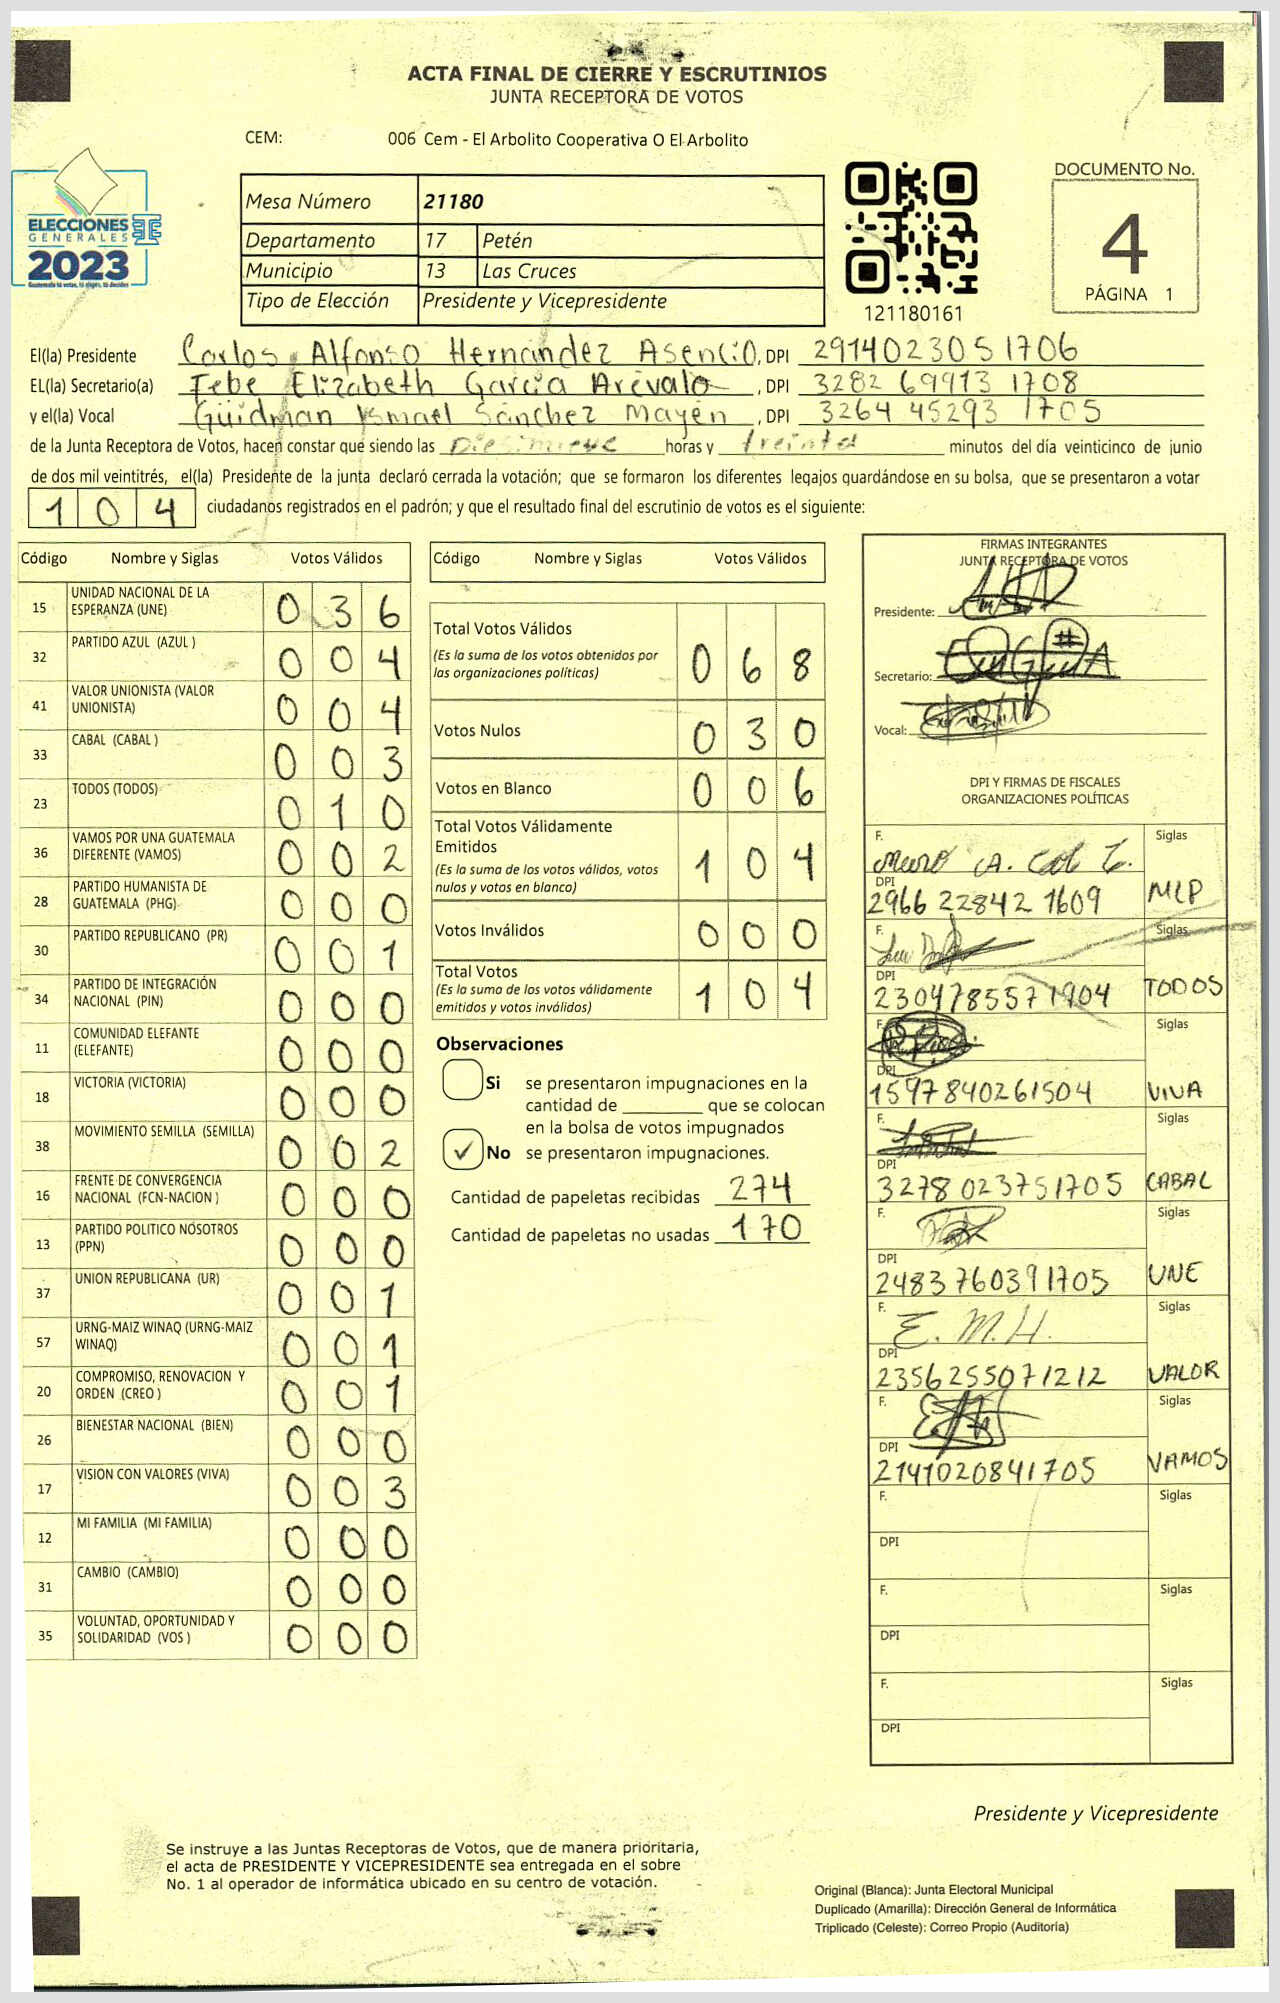 ACTA FINAL DE CIERRE Y ESCRUTINIOS
JUNTA RECEPTORA DE VOTOS
CEM: 006 Cem - El Arbolito Cooperativa O El Arbolito
ELECCIONES
GENERALES
2023
Guatemala tú votas, tú eliges, tú decides
Mesa Número 21180
Departamento 17 Petén
Municipio 13 Las Cruces
Tipo de Elección Presidente y Vicepresidente
121180161
DOCUMENTO No.
4
PÁGINA 1
El(la) Presidente Carlos Alfonso Hernández Asencio, DPI 2914023051706
EL(la) Secretario(a) Febe Elizabeth García Arévalo, DPI 3282 69913 1708
y el(la) Vocal Güidman Ismael Sánchez Mayén, DPI 3264 45293 1705
de la Junta Receptora de Votos, hacen constar que siendo las Diesinueve horas y treinta minutos del día veinticinco de junio
de dos mil veintitrés, el(la) Presidente de la junta declaró cerrada la votación; que se formaron los diferentes legajos guardándose en su bolsa, que se presentaron a votar
104 ciudadanos registrados en el padrón; y que el resultado final del escrutinio de votos es el siguiente:
Código Nombre y Siglas Votos Válidos
15 UNIDAD NACIONAL DE LA ESPERANZA (UNE) 036
32 PARTIDO AZUL (AZUL ) 004
41 VALOR UNIONISTA (VALOR UNIONISTA) 004
33 CABAL (CABAL ) 003
23 TODOS (TODOS) 010
36 VAMOS POR UNA GUATEMALA DIFERENTE (VAMOS) 002
28 PARTIDO HUMANISTA DE GUATEMALA (PHG) 000
30 PARTIDO REPUBLICANO (PR) 001
34 PARTIDO DE INTEGRACIÓN NACIONAL (PIN) 000
11 COMUNIDAD ELEFANTE (ELEFANTE) 000
18 VICTORIA (VICTORIA) 000
38 MOVIMIENTO SEMILLA (SEMILLA) 002
16 FRENTE DE CONVERGENCIA NACIONAL (FCN-NACION ) 000
13 PARTIDO POLITICO NOSOTROS (PPN) 000
37 UNION REPUBLICANA (UR) 001
57 URNG-MAIZ WINAQ (URNG-MAIZ WINAQ) 001
20 COMPROMISO, RENOVACION Y ORDEN (CREO ) 001
26 BIENESTAR NACIONAL (BIEN) 000
17 VISION CON VALORES (VIVA) 003
12 MI FAMILIA (MI FAMILIA) 000
31 CAMBIO (CAMBIO) 000
35 VOLUNTAD, OPORTUNIDAD Y SOLIDARIDAD (VOS ) 000
Código Nombre y Siglas Votos Válidos
Total Votos Válidos 068
(Es la suma de los votos obtenidos por
las organizaciones políticas)
Votos Nulos 030
Votos en Blanco 006
Total Votos Válidamente
Emitidos 104
(Es la suma de los votos válidos, votos
nulos y votos en blanco)
Votos Inválidos 000
Total Votos 104
(Es la suma de los votos válidamente
emitidos y votos inválidos)
Observaciones
Si se presentaron impugnaciones en la
cantidad de ________ que se colocan
en la bolsa de votos impugnados
✓ No se presentaron impugnaciones.
Cantidad de papeletas recibidas 274
Cantidad de papeletas no usadas 170
FIRMAS INTEGRANTES
JUNTA RECEPTORA DE VOTOS
Presidente:
Secretario:
Vocal:
DPI Y FIRMAS DE FISCALES
ORGANIZACIONES POLÍTICAS
F. Siglas
DPI
2966 22842 1609 MLP
F. Siglas
DPI
2304785571904 TODOS
F. Siglas
DPI
1597840261504 VIVA
F. Siglas
DPI
3278023751705 CABAL
F. Siglas
DPI
2483760391705 UNE
F. E. M. H. Siglas
DPI
2356255071212 VALOR
F. Siglas
DPI
2141020841705 VAMOS
F. Siglas
DPI
F. Siglas
DPI
F. Siglas
DPI
Presidente y Vicepresidente
Se instruye a las Juntas Receptoras de Votos, que de manera prioritaria,
el acta de PRESIDENTE Y VICEPRESIDENTE sea entregada en el sobre
No. 1 al operador de informática ubicado en su centro de votación.
Original (Blanca): Junta Electoral Municipal
Duplicado (Amarilla): Dirección General de Informática
Triplicado (Celeste): Correo Propio (Auditoría)